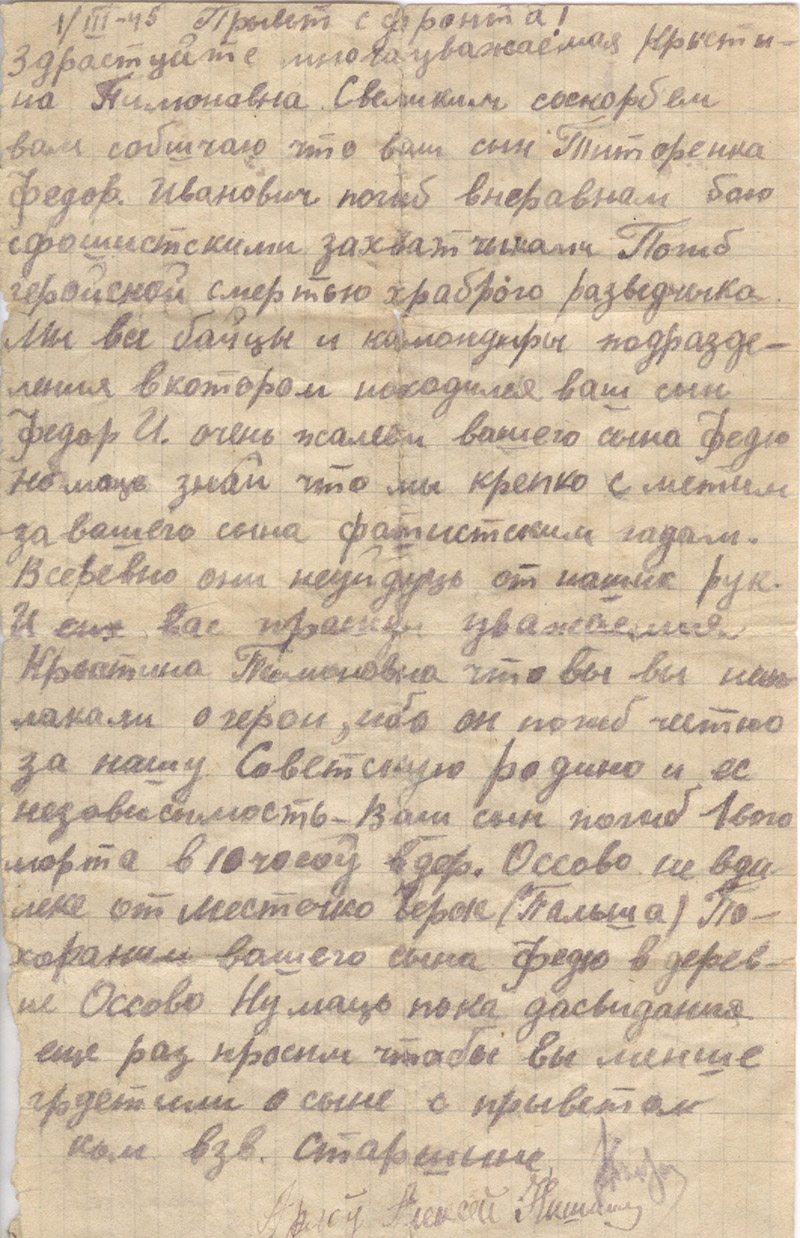 1/III-45 Привет с фронта!
Здрастуйте многауважаемая Крысти-
на Тимоновна Свеликим соскорбем
вам собшчаю что ваш сын Титоренка
Федор. Иванович погиб внеравнам бою
сфошистскими захватчиками Погиб
геройской смертью храброго разведчыка.
Мы все байцы и камондиры подразде-
ления вкотором находился ваш сын
Федор И. очень жалеем вашего сына Федю
но маць знай что мы крепко с метим
за вашего сына фашистским гадам.
Всеревно они неуйдуць от наших рук.
И вас уважаемая
Крыстина Тимоновна что вы вы не
лакали о герои, ибо он погиб честно
за нашу Советскую родино и ес
незовисимость-Ваш сын погиб 1вого
морта в 10 часоў в дер. Оссово не вда
леке от Месточко Черск (Пальша) По-
хоранили вашего сына Федю в дерев-
не Оссово Ну маць пока дасвидания
еще раз просим чтабы вы менше
грустили о сыне с прыветам
ком взв. старшыне
Алексей